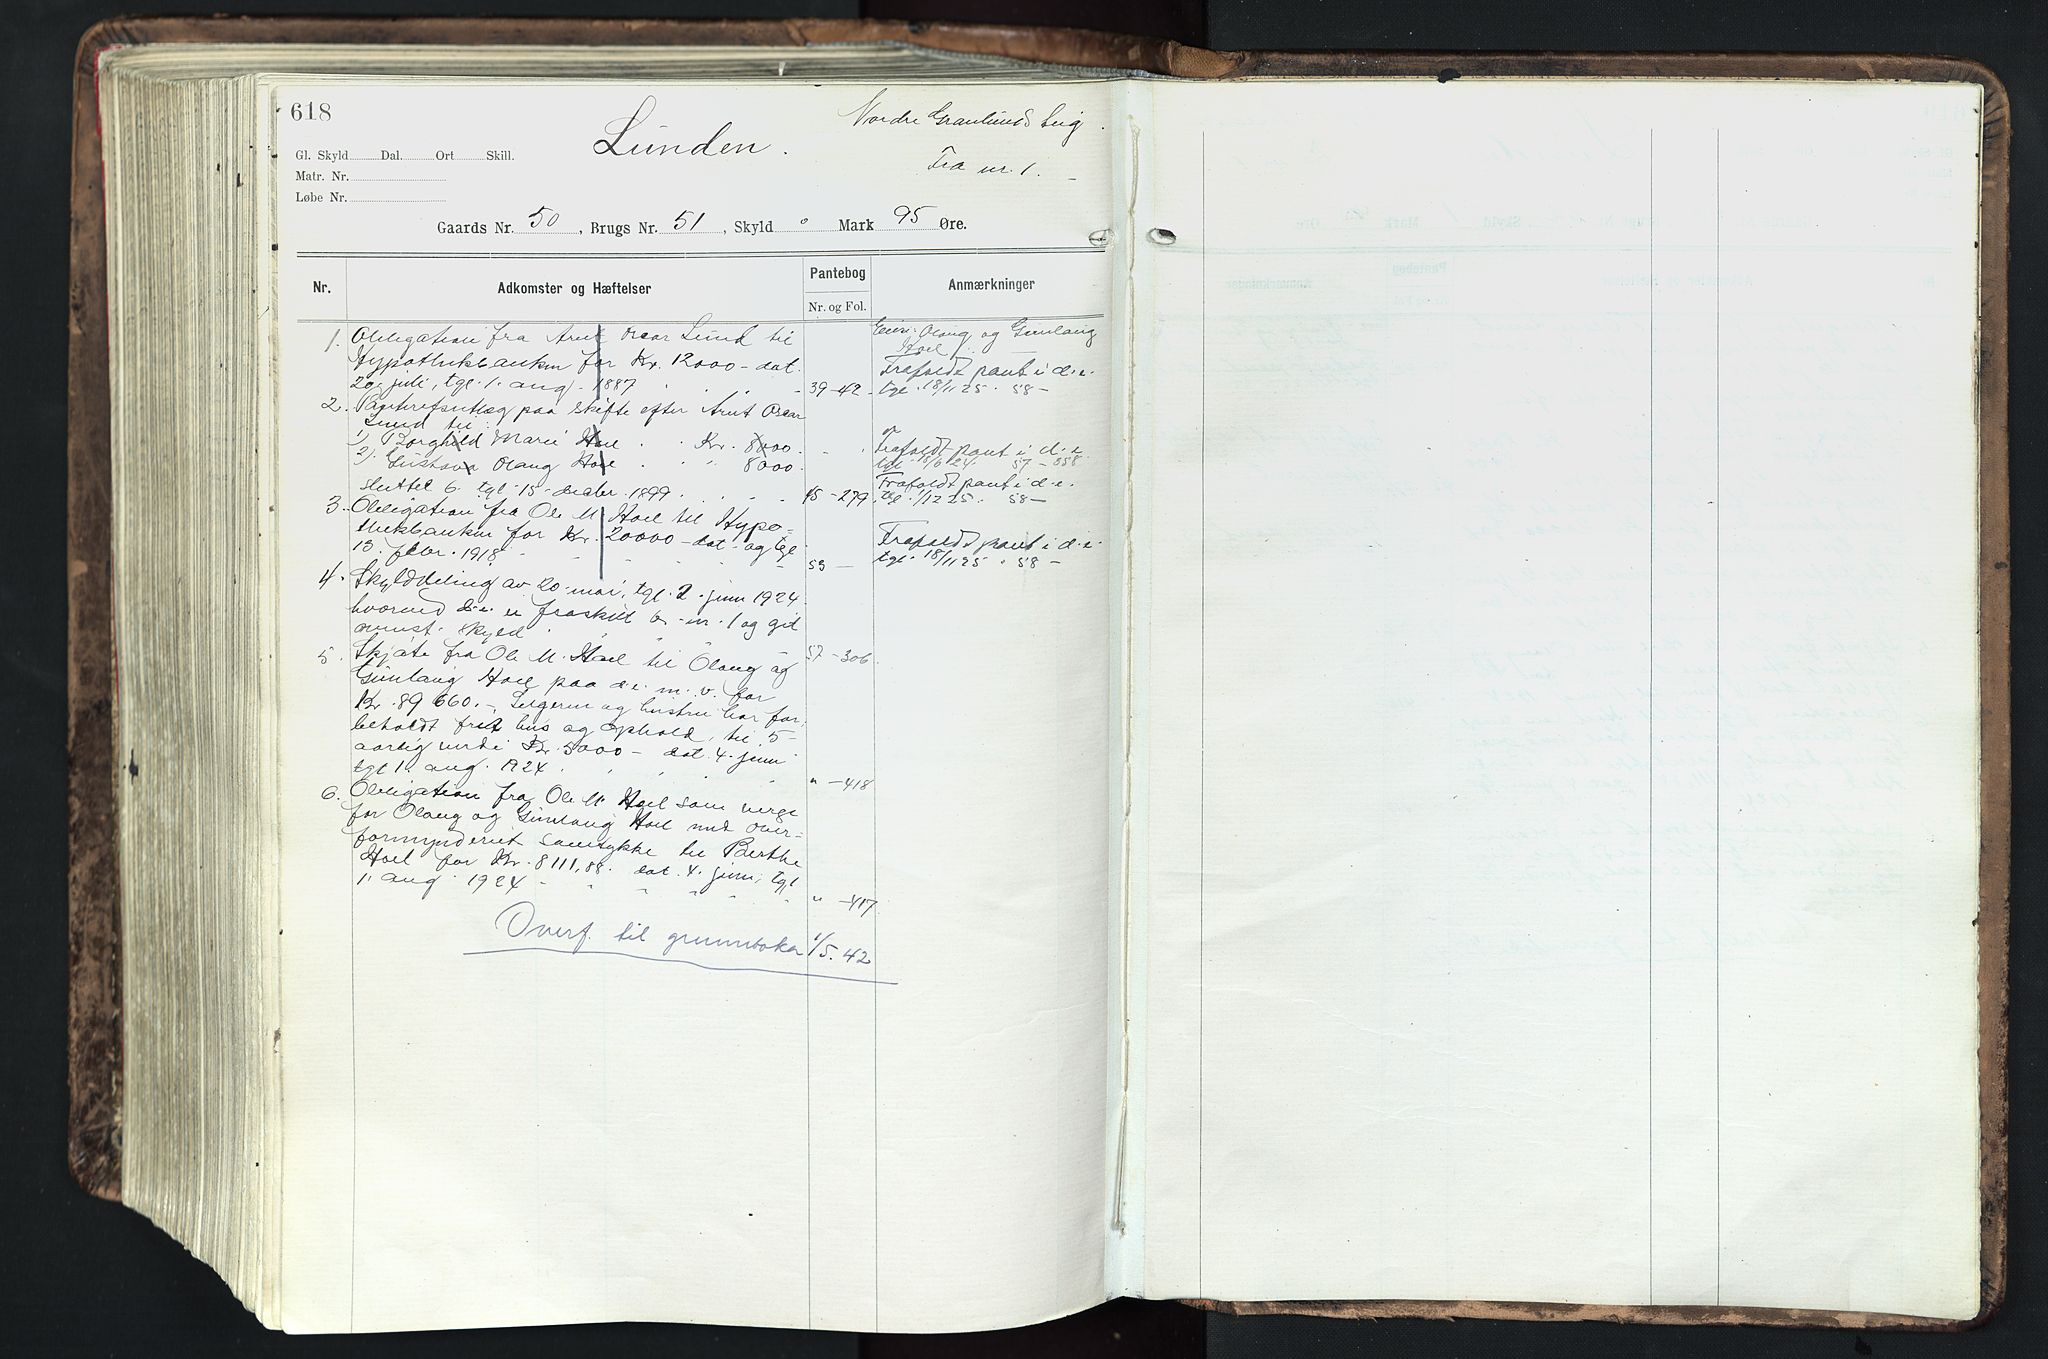 618
Lunden.
Nordre
Fra nr. 1.
Gl. Skyld Dal. Ort Skill.
Matr. Nr.
Løbe Nr.
Gaards Nr. 50, Brugs Nr. 51, Skyld 0 Mark 95 Øre.
Nr. Adkomster og Hæftelser Pantebog Anmærkninger
Nr. og Fol.
1. Obligation fra Arnt Oscar Lund til
Hypothekbanken for Kr. 12000 - dat.
20. juli, tgl. 1. aug. 1887 39-42
Eiere: Olaug og Gunlaug
Hoel
Frafaldt pant i d.e.
tgl. 18/11 25. 58 -
2. paa skifte efter Arnt Oscar
Lund til:
1) Borghild Marie Hoel Kr. 8000.
2) Gustava Olaug Hoel " 8000.
sluttet 6. tgl. 15. decbr. 1899. 45-279
Frafaldt pant i d.e.
tgl. 18/6 24. 57-358
Frafaldt pant i d.e.
tgl. 1/12 25. 58 -
3. Obligation fra Ole M. Hoel til Hypo-
thekbanken for Kr. 20000 - dat. og tgl.
13. febr. 1918 53 -
Frafaldt pant i d.e.
tgl. 18/11 25. 58 -
4. Skylddeling av 20. mai, tgl. 2. juni 1924
hvorved d.e. er fraskilt br. nr. 1 og git
skyld 57-306
5. Skjøte fra Ole M. Hoel til Olaug og
Gunlaug Hoel paa d.e. m.v. for
Kr. 89 660.-, Selgeren og hustru har for-
beholdt frit hus og ophold, til 5-
aarlig verdi Kr. 5000 - dat. 4. juni
tgl. 1. aug. 1924 " -418
6. Obligation fra Ole M. Hoel som verge
for Olaug og Gunlaug Hoel med over-
formynderiet samtykke til Berthe
Hoel for Kr. 8111,88. dat. 4. juni, tgl.
1. aug. 1924 " -417
Overf. til grunnboka 1/5.42